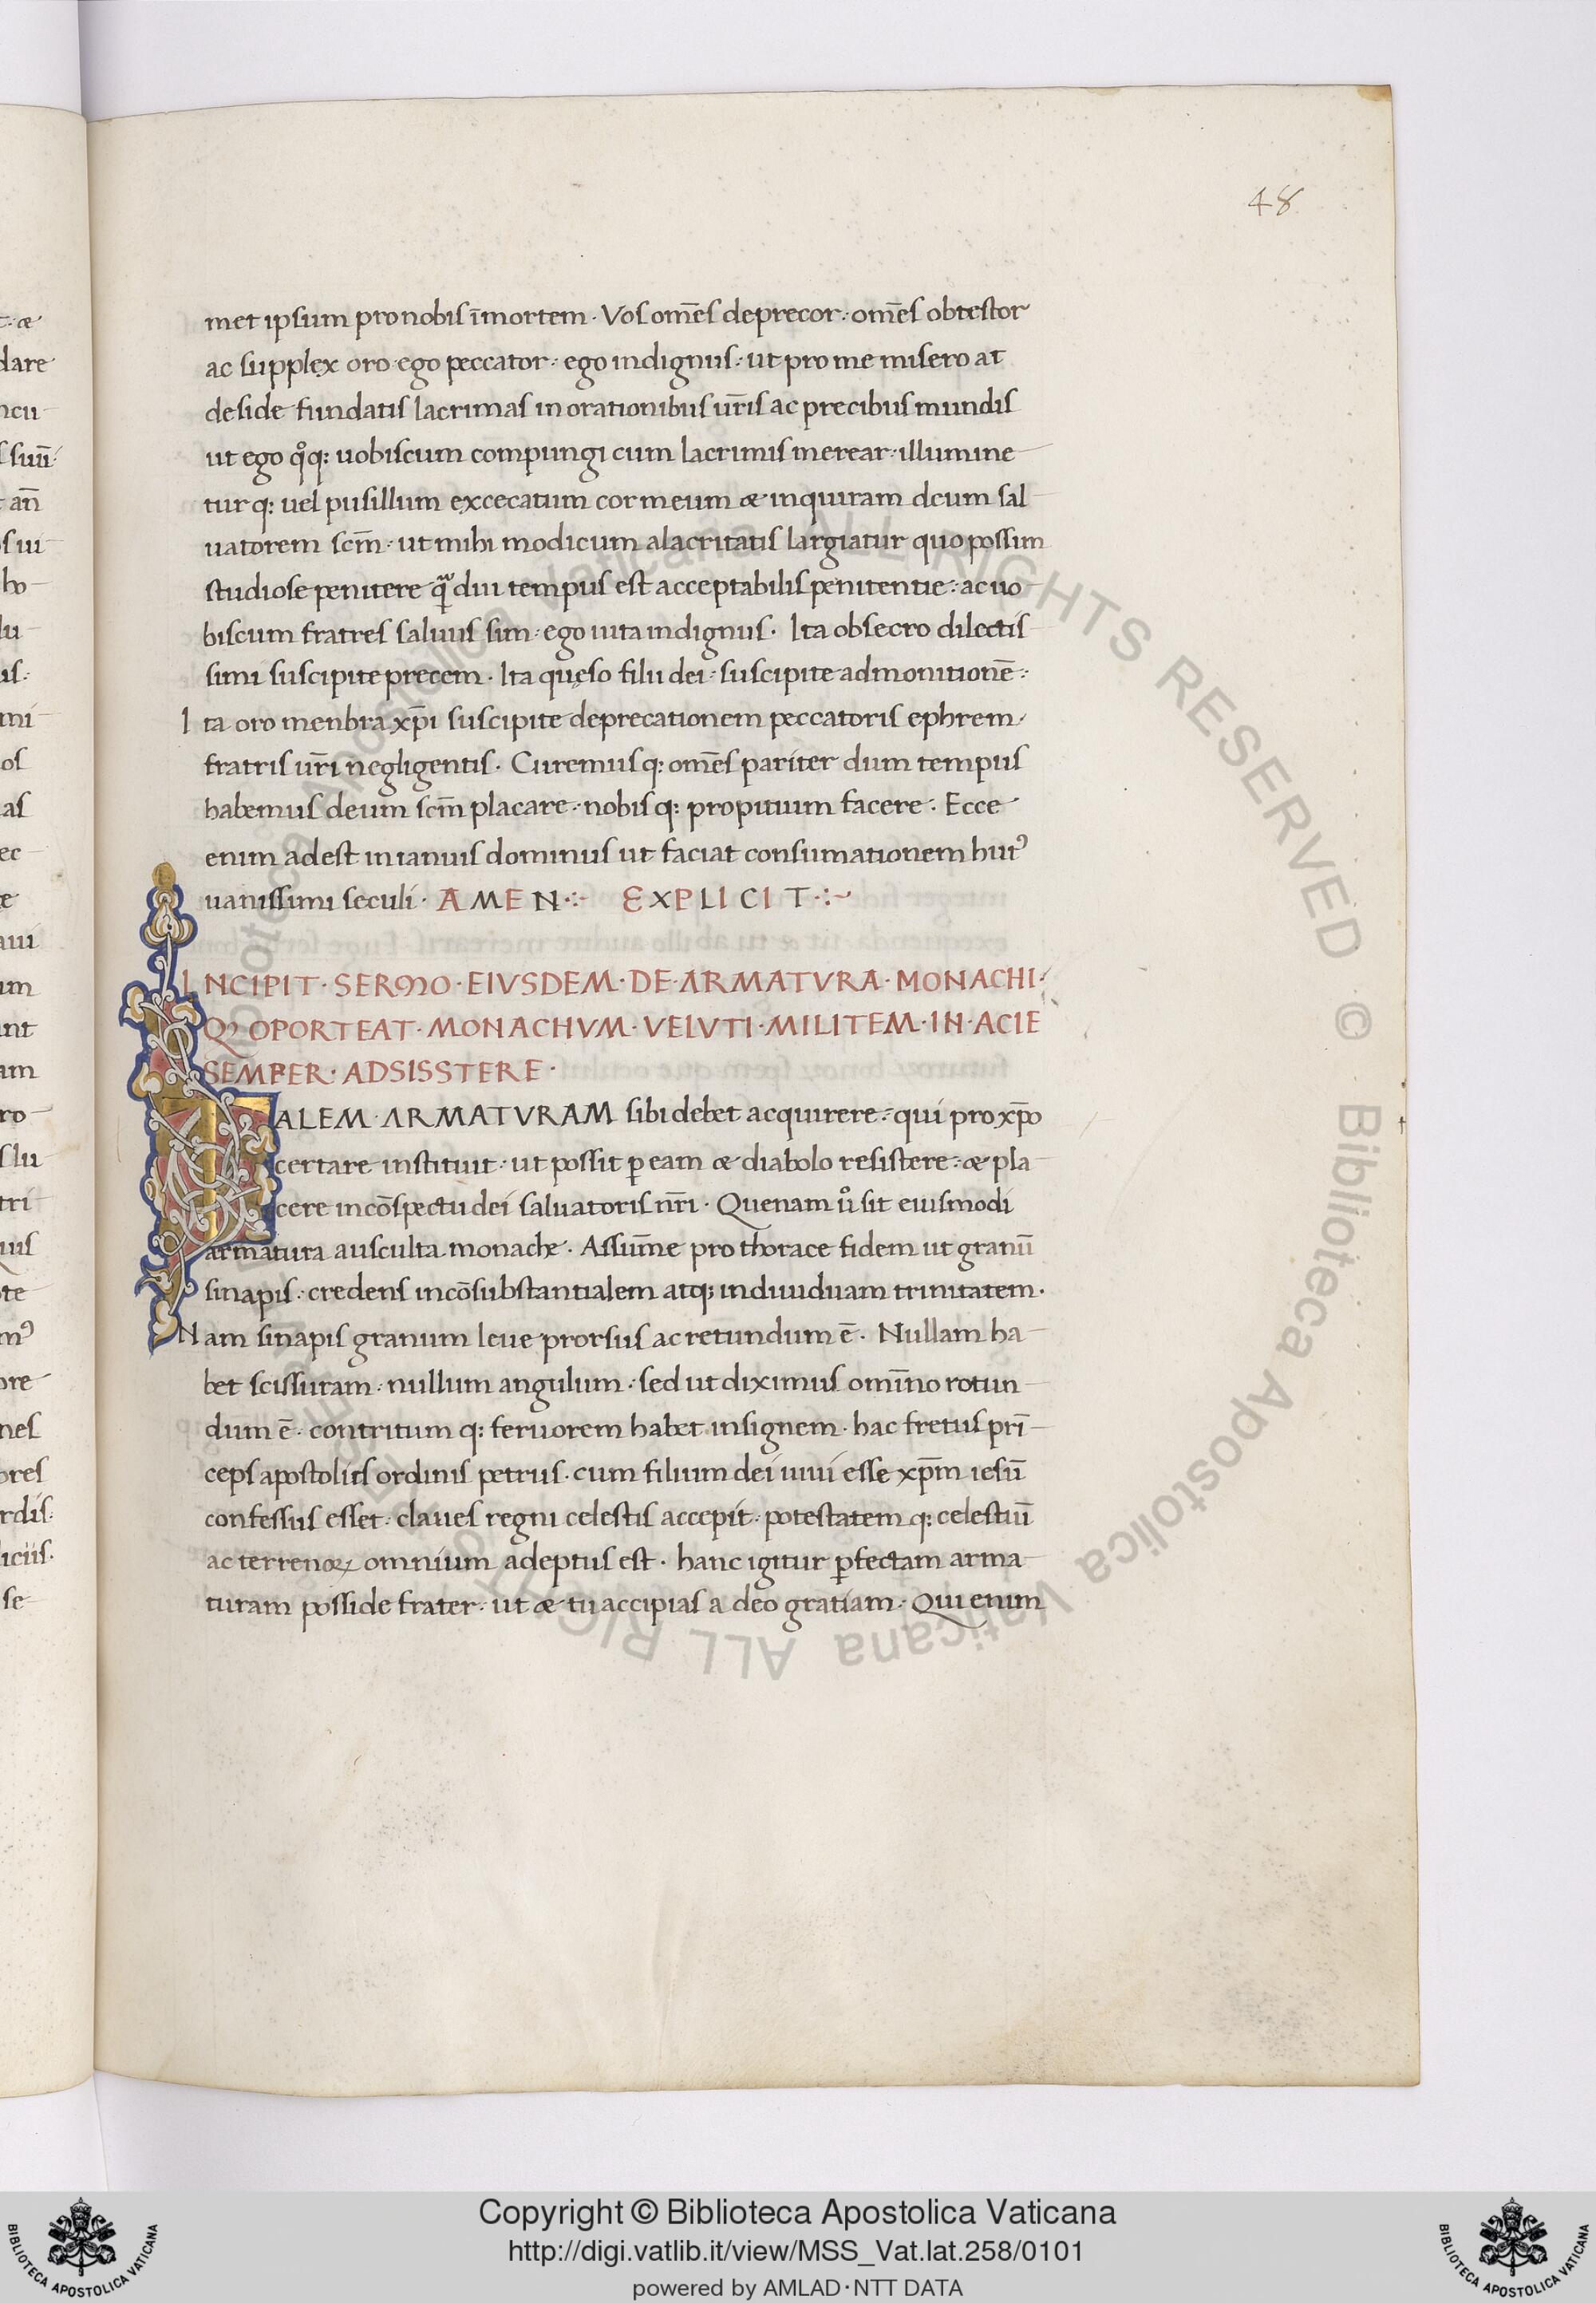 48
met ipsum pro nobis ī mortem · Vos om̄es deprecor ·: om̄es obtestor
ac supplex oro · ego peccator ·: ego indignus ·: ut pro me misero at
deside fundatis lacrimas in orationibus ur̄is ac precibus mundis
ut ego qͦq: uobiscum compungi cum lacrimis merear ·: illumine
tur q: uel pusillum excecatum cor meum æ inquiram deum sal
uatorem scm̄ ·: ut mihi modicum alacritatis largiatur quo possim
studiose penitere qͣ diu tempus est acceptabilis penitentie ·: ac uo
biscum fratres saluus sim · ego uita indignus · Ita obsecro dilectis
simi suscipite precem · Ita quęso filii dei ·: suscipite admonitionē ·:
Ita oro menbra xp̄i suscipite deprecationem peccatoris ephrem
fratris ur̄i negligentis · Curemus q: om̄es pariter dum tempus
habemus deum scm̄ placare ·: nobis q: propitium facere · Ecce
enim adest in ianuis dominus ut faciat consumationem huiꝰ
uanissimi seculi · AMEN ·:~ EXPLICIT ·:~
INCIPIT · SERMO · EIVSDEM · DE · ARMATVRA · MONACHI ·
QꝘ OPORTEAT · MONACHVM · VELVTI · MILITEM · IN · ACIE
SEMPER · ADSISSTERE ·
TALEM · ARMATVRAM sibi debet acquirere ·: qui pro xp̄o
certare instituit ·: ut possit ꝑ eam æ diabolo resistere ·: æ pla
cere in cōspectu dei saluatoris nr̄i · Quenam uͦ sit eiusmodi
armatura ausculta monache · Assum̄e pro thorace fidem ut granū
sinapis ·: credens in cōsubstantialem atq; indiuiduam trinitatem ·
Nam sinapis granum leue prorsus ac retundum ē · Nullam ha
bet scissuram ·: nullum angulum ·: sed ut diximus omīno rotun
dum ē · contritum q: feruorem habet insignem · hac fretus prī
ceps apostolici ordinis petrus · cum filium dei uiui esse xp̄m iesū
confessus esset ·: claues regni celestis accepit ·: potestatem q: celestiū
ac terrenoꝝ omnium adeptus est · hanc igitur ꝑfectam arma
turam posside frater ·: ut æ tu accipias a deo gratiam · Qui enim
Copyright © Biblioteca Apostolica Vaticana
http://digi.vatlib.it/view/MSS_Vat.lat.258/0101
powered by AMLAD · NTT DATA